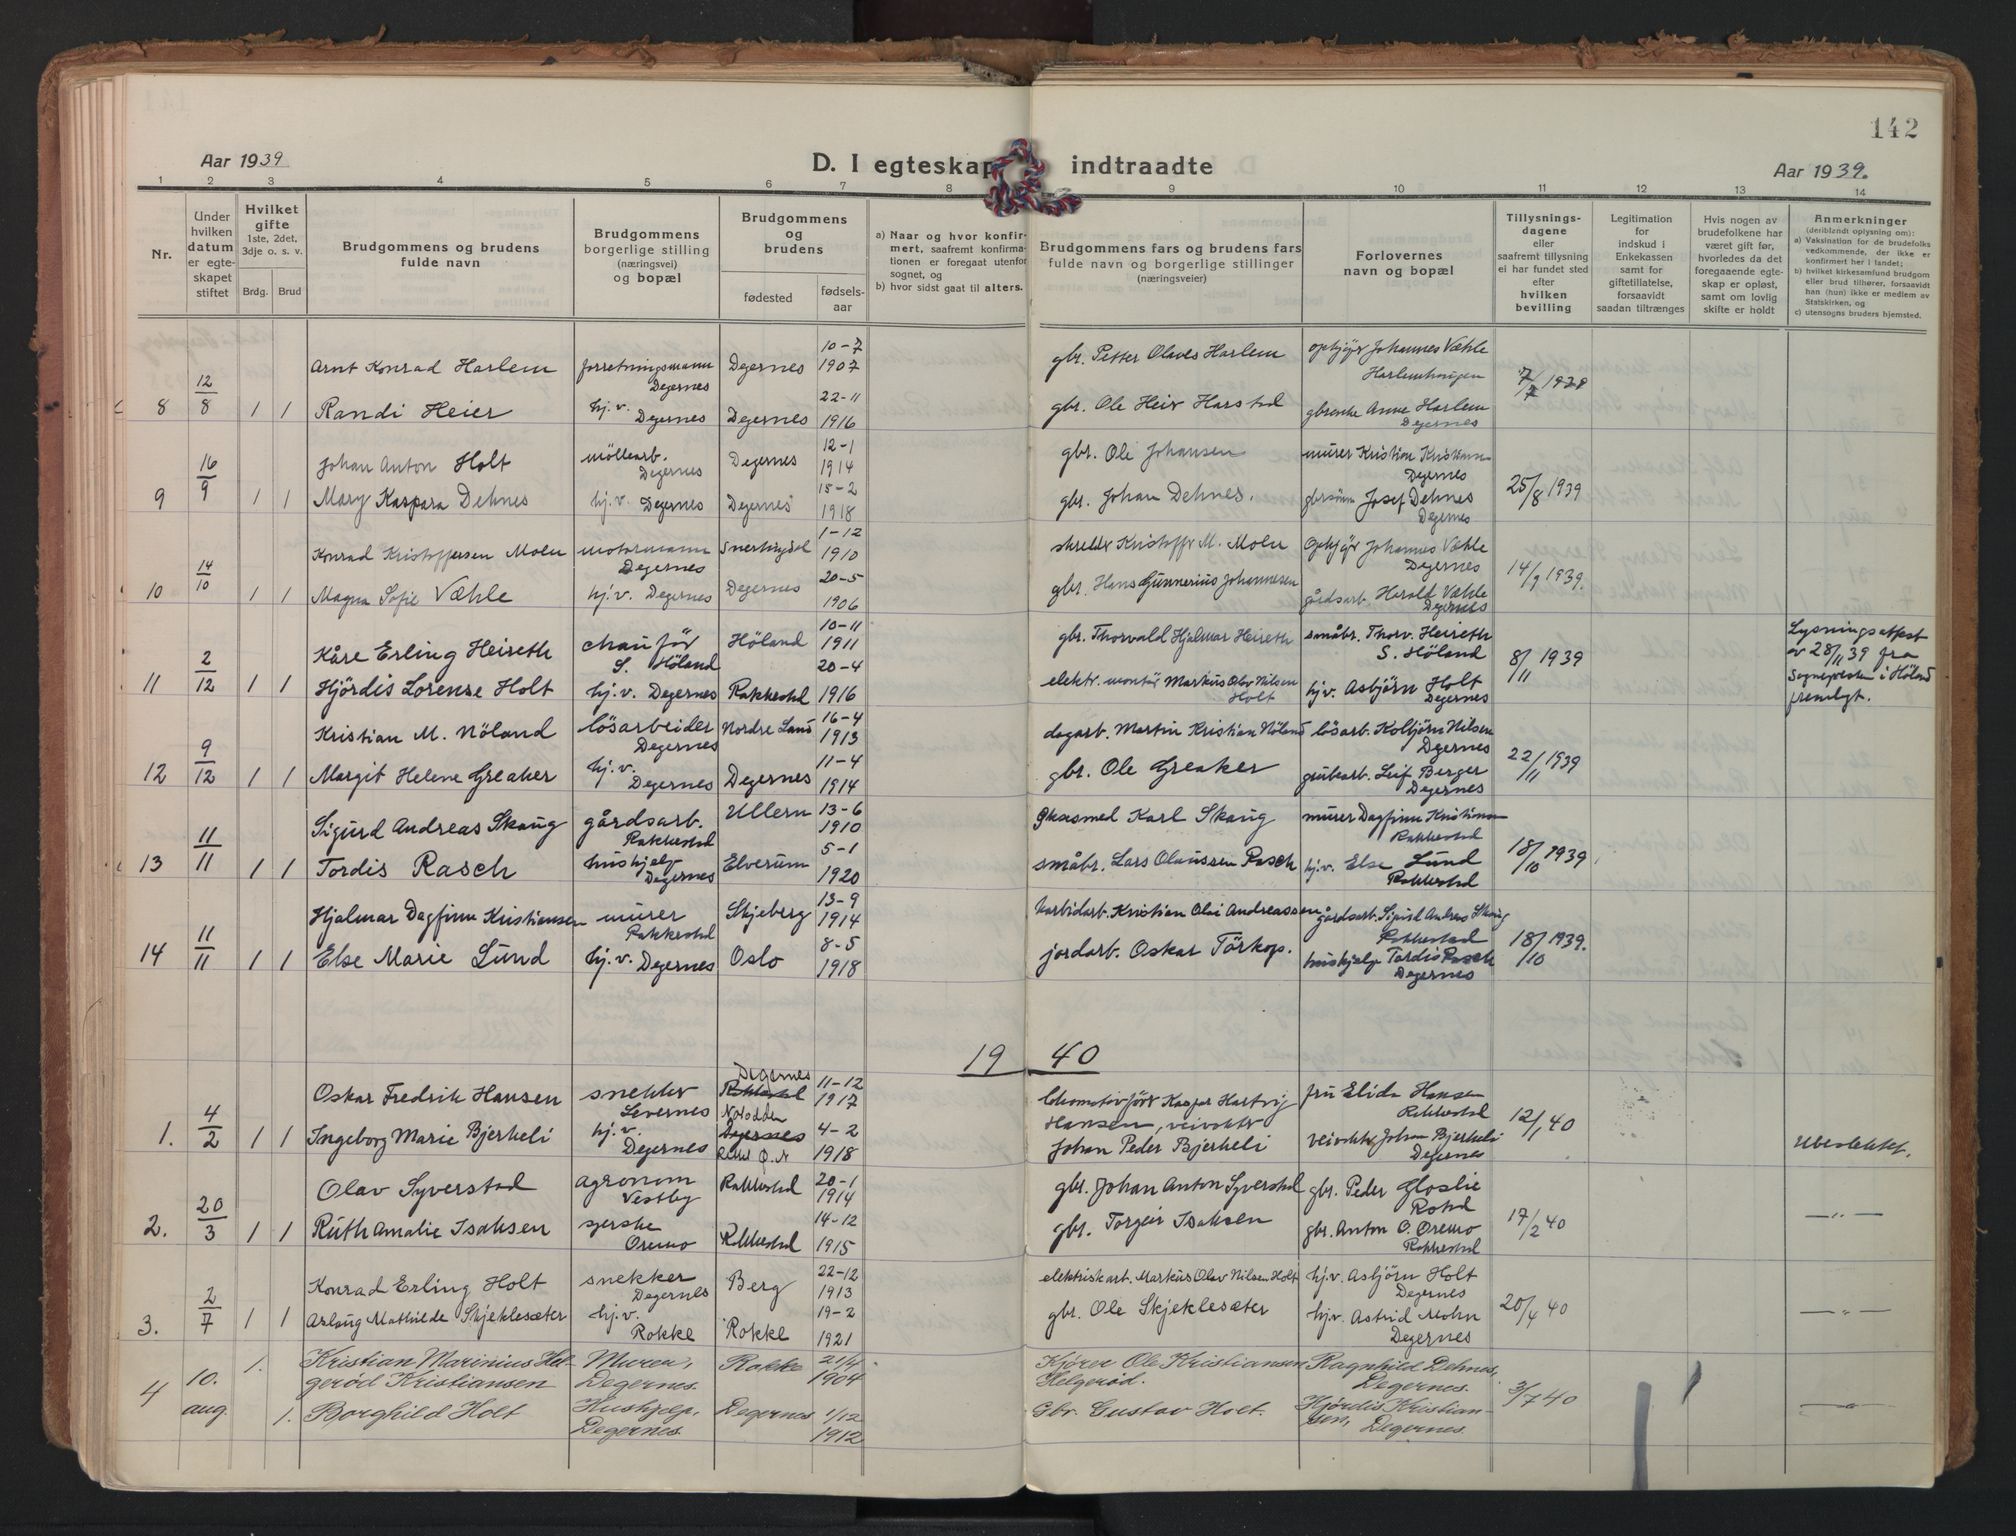 142
Aar 1939
D. I egteskap indtraadte
Aar 1939.
1 2 3 4 5 6 7 8 9 10 11 12 13 14
Nr.
Under hvilken datum er egteskapet stiftet
Hvilket gifte
1ste, 2det, 3dje o. s. v.
Brdg. Brud
Brudgommens og brudens fulde navn
Brudgommens borgerlige stilling (næringsvei) og bopæl
Brudgommens og brudens
fødested
fødselsaar
a) Naar og hvor konfirmert, saafremt konfirmationen er foregaat utenfor sognet, og
b) hvor sidst gaat til alters.
Brudgommens fars og brudens fars fulde navn og borgerlige stillinger (næringsveier)
Forlovernes navn og bopæl
Tillysningsdagene eller saafremt tillysning ei har fundet sted efter hvilken bevilling
Legitimation for indskud i Enkekassen samt for giftetillatelse, forsaavidt saadan tiltrænges
Hvis nogen av brudefolkene har været gift før, hvorledes da det foregaaende egteskap er opløst, samt om lovlig skifte er holdt
Anmerkninger
(deriblandt oplysning om):
a) Vaksination for de brudefolks vedkommende, der ikke er konfirmert her i landet;
b) hvilket kirkesamfund brudgom eller brud tilhører, forsaavidt han (hun) ikke er medlem av Statskirken, og
c) utensogns bruders hjemsted.
8 12/8 1 1
Arnt Konrad Harlem forretningsmann Degernes Degernes 10-7 1907 gbr. Petter Olaves Harlem Johannes Væhle Harlemhaugen
Randi Heier hj.v. Degernes Degernes 22-11 1916 gbr. Ole Heir Harstad Anne Harlem Degernes
9 16/9 1 1
Johan Anton Holt möllearb. Degernes Degernes 12-1 1914 gbr. Ole Johansen murer Kristian Kristians Degernes
Mary Kaspara Dehnes hj.v. Degernes Degernes 15-2 1918 gbr. Johan Dehnes. gbrsönn Josef Dehnes Degernes 25/8 1939
10 14/10 1 1
Konrad Kristoffersen Moln motormann Degernes 1-12 1910 Kristoffr M. Moln Johannes Væhle Degernes
Magna Sofie Væhle hj.v. Degernes Degernes 20-5 1906 gbr. Hans Gunnerius Johannesen gårdsarb. Harald Væhle Degernes 14/9 1939.
11 2/12 1 1
Kåre Erling Heireth chauför S. Höland Höland 10-11 1911 gbr. Thorvald Hjalmar Heireth småbr. Thorv. Heireth S. Höland
Hjördis Lorense Holt hj.v. Degernes Rakkestad 20-4 1916 elektr. montör Markus Olav Nilsen Holt hjv. Asbjörn Holt Degernes 8/11 1939
Lysningsattest av 28/11 39 fra Sognepresten i Höland fremlagt.
12 9/12 1 1
Kristian M. Nöland lösarbeider Degernes Nordre Land 16-4 1913 dagarb. Martin Kristian Nöland lösarb. Kolbjörn Nilsen Degernes
Margit Helene Greaker hj.v. Degernes Degernes 11-4 1914 gbr. Ole Greaker grubearb. Leif Berger Degernes 22/11 1939
13 11/11 1 1
Sigurd Andreas Skaug gårdsarb. Rakkestad Ullern 13-6 1910 Karl Skaug murer Dagfinn Kristiansen Rakkestad
Tordis Rasch hushjelp Degernes Elverum 5-1 1920 småbr. Lars Olaussen Rasch hj.v. Else Lund Rakkestad 18/10 1939
14 11/11 1 1
Hjalmar Dagfinn Kristiansen murer Rakkestad Skjeberg 13-9 1914 karbidarb. Kristian Olai Andreassen gårdsarb. Sigurd Andreas Skaug Rakkestad
Else Marie Lund hj.v. Degernes Oslo 8-5 1918 jordarb. Oskar Törkop. hushjelp Tordis Rasch Degernes 18/10 1939.
19 40
1. 4/2 1 1
Oskar Fredrik Hansen snekker Degernes Rakkestad 11-12 1917 lokomotivförr Kaspar Hartvig Hansen, fru Elida Hansen Rakkestad
Ingeborg Marie Bjerkeli hj.v. Degernes Notodden Degernes 4-2 1918 Johan Peder Bjerkeli Johan Bjerkeli Degernes 12/1 40
Ubeslektet.
2. 20/3 1 1
Olav Syverstad agronom Vestby Rakkestad 20-1 1914 gbr. Johan Anton Syverstad gbr. Peder Gloslie
Ruth Amalie Isaksen Oremo Rakkestad 14-12 1915 gbr. Torgeir Isaksen gbr. Anton O. Oremo Rakkestad 17/2 40
—"—
3. 2/7 1 1
Konrad Erling Holt snekker Degernes Berg 22-12 1913 elektriskarb. Markus Olav Nilsen Holt hj.v. Asbjörn Holt Degernes
Aslaug Mathilde Skjeklesæter hj.v. Rokke Rokke 19-2 1921 gbr. Ole Skjeklesæter hj.v. Astrid Mohn Degernes 20/4 40
—"—
4 10. aug. 1. 1.
Kristian Marinius Helgerød Kristiansen Murer, Degernes. Rokke 21/4 1904 Kjører Ole Kristiansen Helgerød. Ragnhild Dehnes, Degernes.
Borghild Holt Hushjelp, Degernes. Degernes 1/12 1912 Gbr. Gustav Holt. Hjørdis Kristiansen, Degernes. 3/7 40
—"—